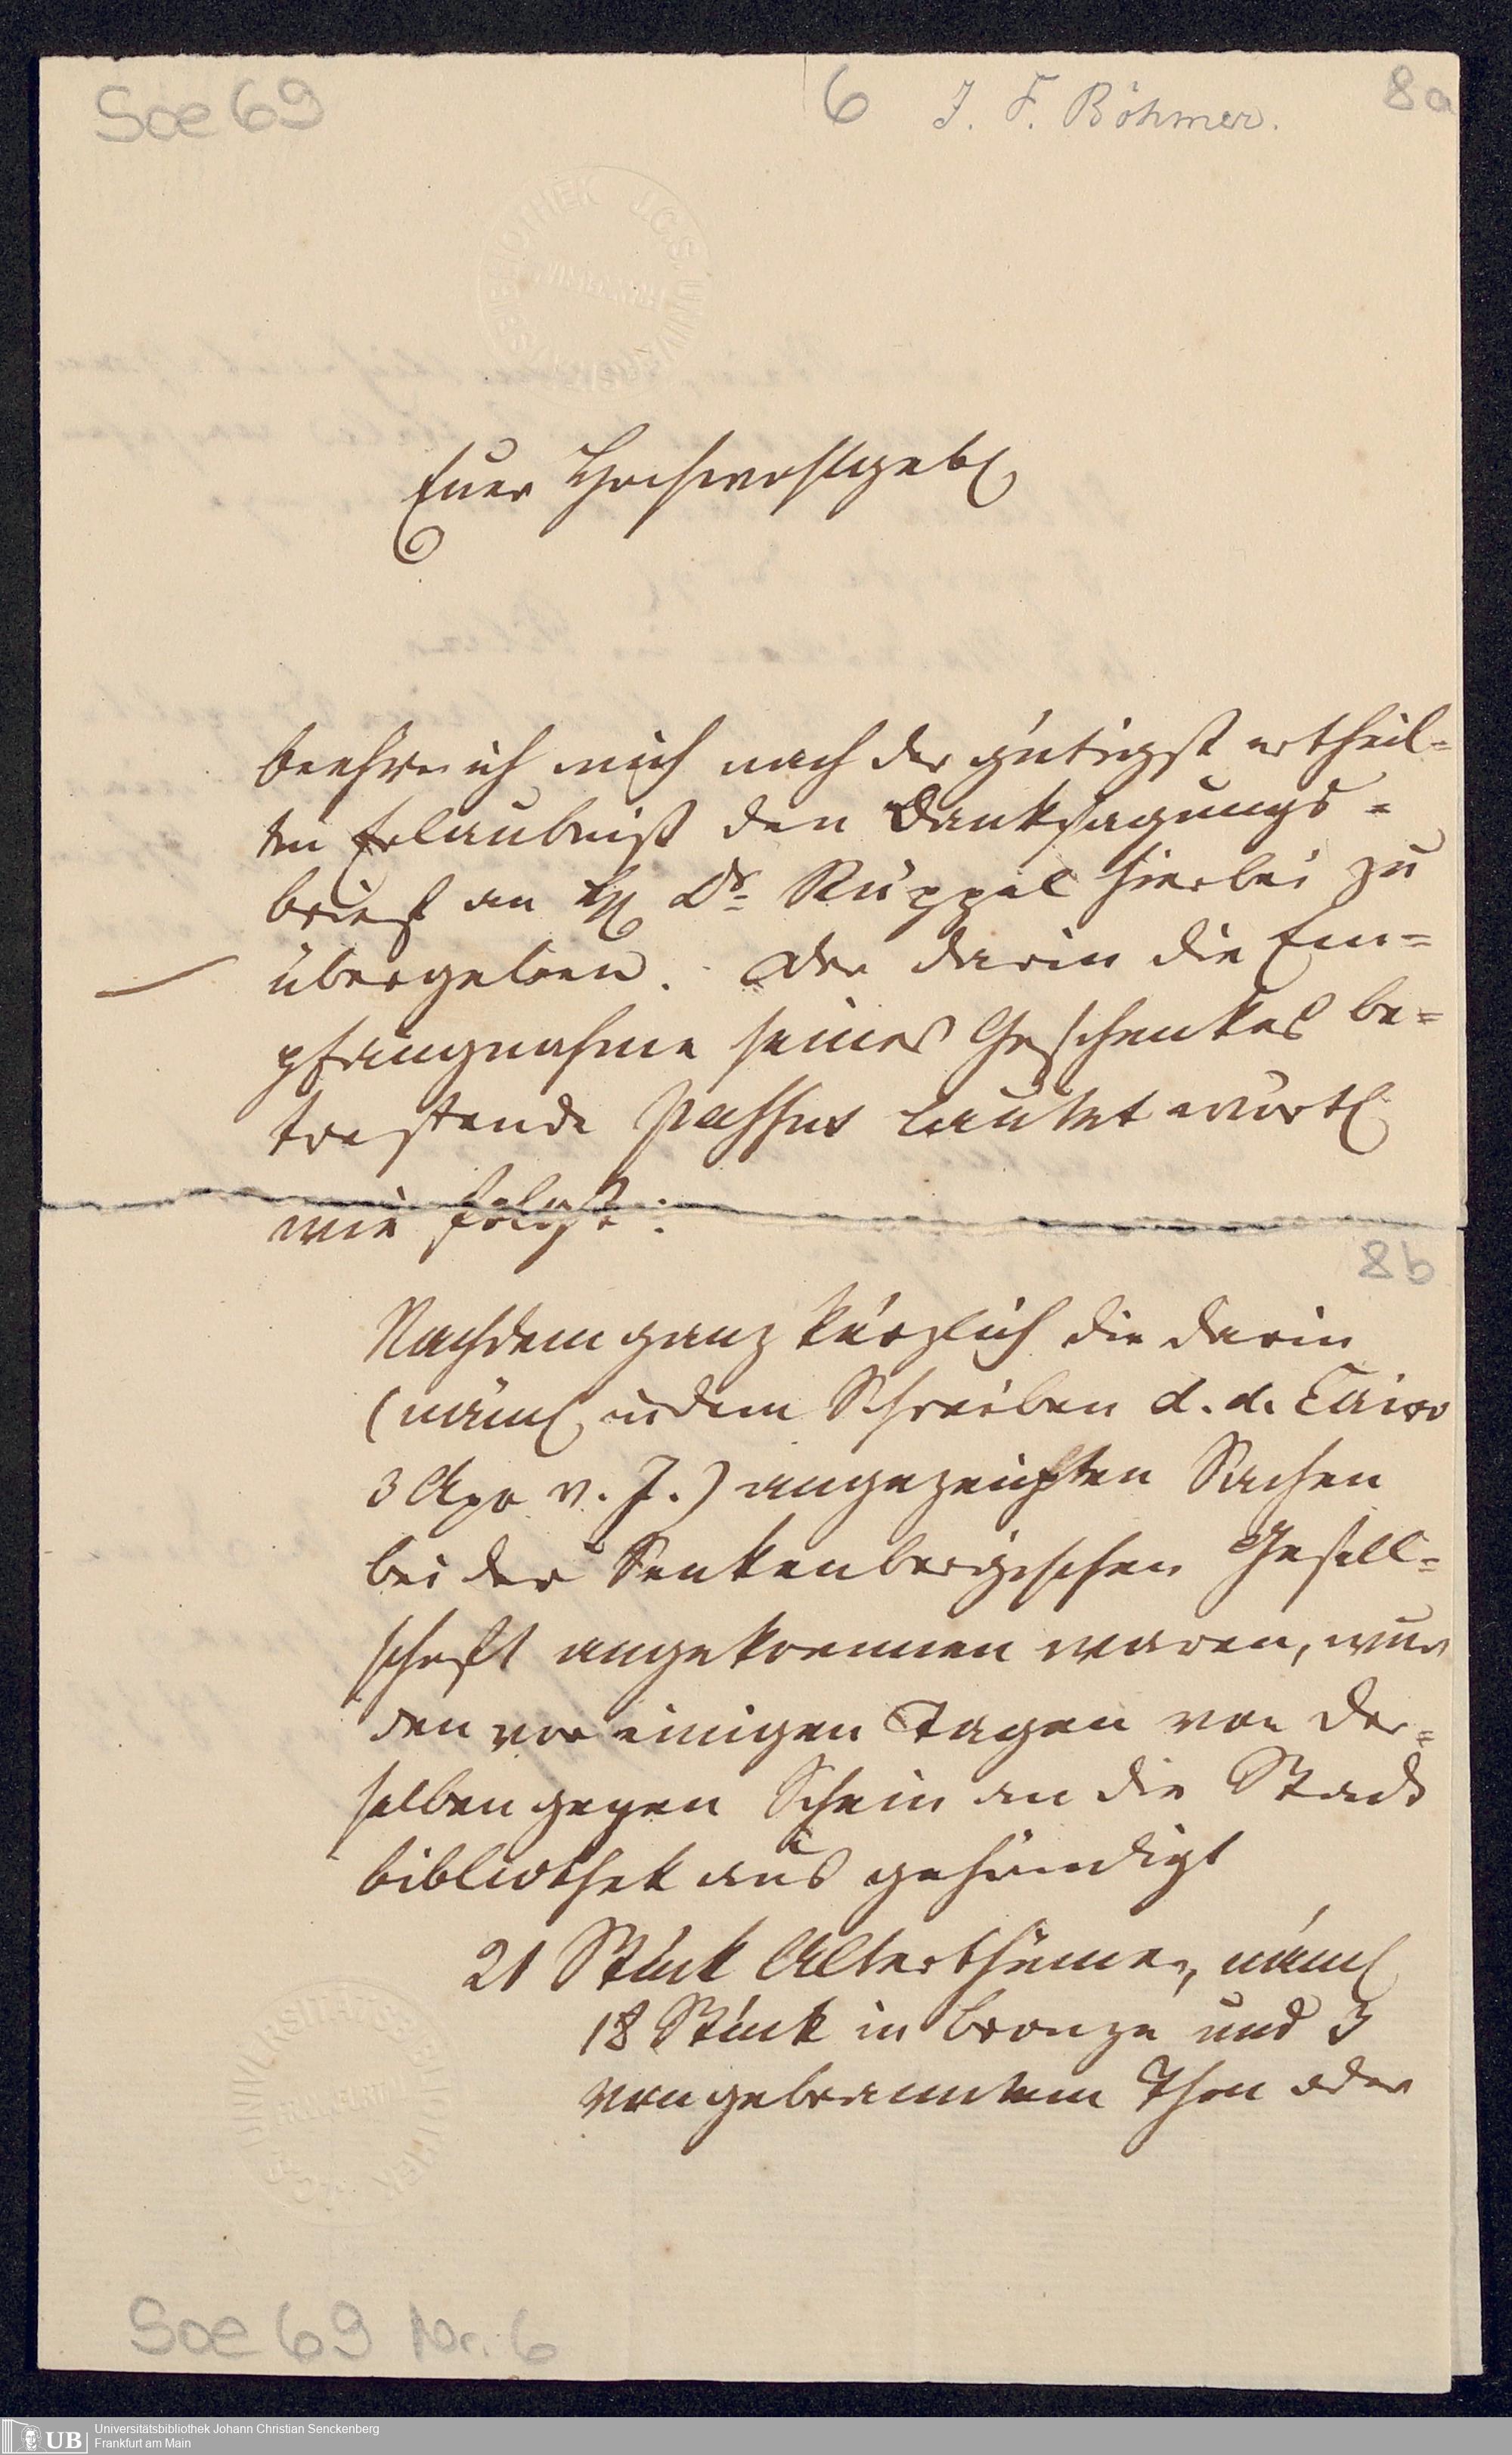 Soe 69
6 J. F. Böhmer. 8a
Euer Hochwohlgeb
beehre ich mich nach der gütigst ertheil=
ten Erlaubniß den Danksagungs=
brief an H Dr. Rüppel hierbei zu
übergeben. Der darin die Em=
pfangnahme seines Geschenkes be=
treffende Passus lautet wörtl
wie folgt:
8b
Nachdem ganz kürzlich die darin
(näml in dem Schreiben d. d. Cairo
3 Apr v. J.) angezeigten Sachen
bei der Senkenbergischen Gesell=
schaft angekommen waren, wur
den vor einigen Tagen von der=
selben gegen Schein an die Stadt
bibliothek aus gehändigt
21 Stück Alterthümer, näml
18 Stück in Bronze und 3
von gebranntem Thon oder
Soe 69 Nr. 6
UB
Universitätsbibliothek Johann Christian Senckenberg
Frankfurt am Main